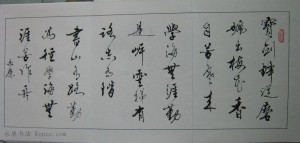 寶劍鋒從磨
礪出梅花香
自苦寒來
學海無涯勤
是岸雲程有
路志為階
書山有路勤
為徑學海無
涯苦作舟